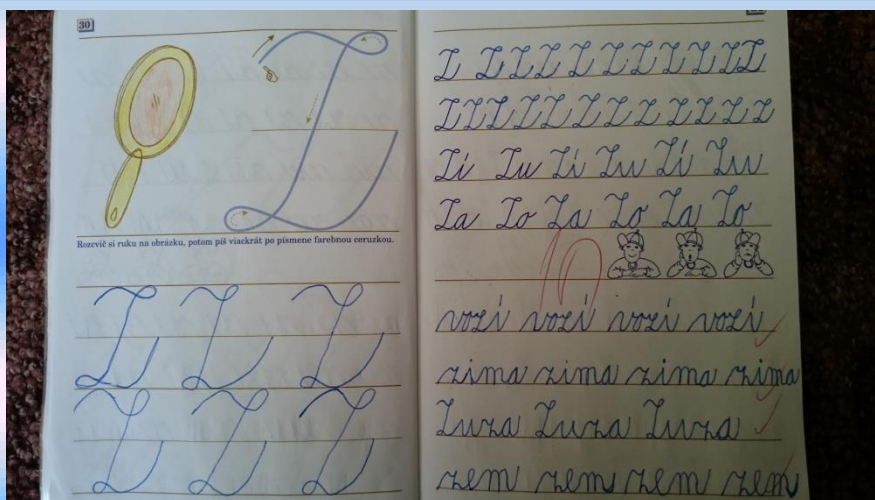 30
Z
Rozcvič si ruku na obrázku, potom píš viackrát po písmene farebnou ceruzkou.
Z Z Z
Z Z Z
Z Z Z Z Z Z Z Z Z Z Z
Z Z Z Z Z Z Z Z Z Z Z Z
Zi Zu Zi Zu Zí Zu
Za Zo Za Zo Za Zo
10
vozí vozí vozí vozí
zima zima zima zima
Zuza Zuza Zuza
zem zem zem zem